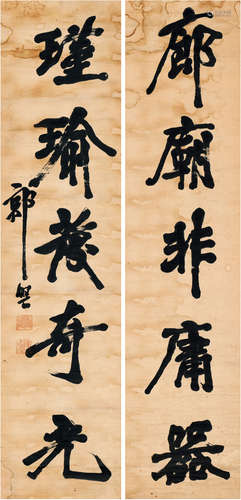 廊廟非庸器
瑾瑜發奇光
郭